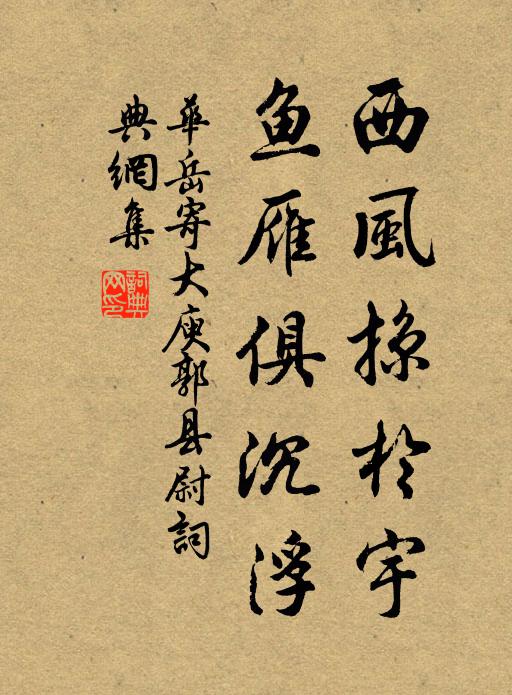 西風掠於宇
鱼雁俱沉浮
華岳寄大庾郭县尉詞
典網集
詞典网印